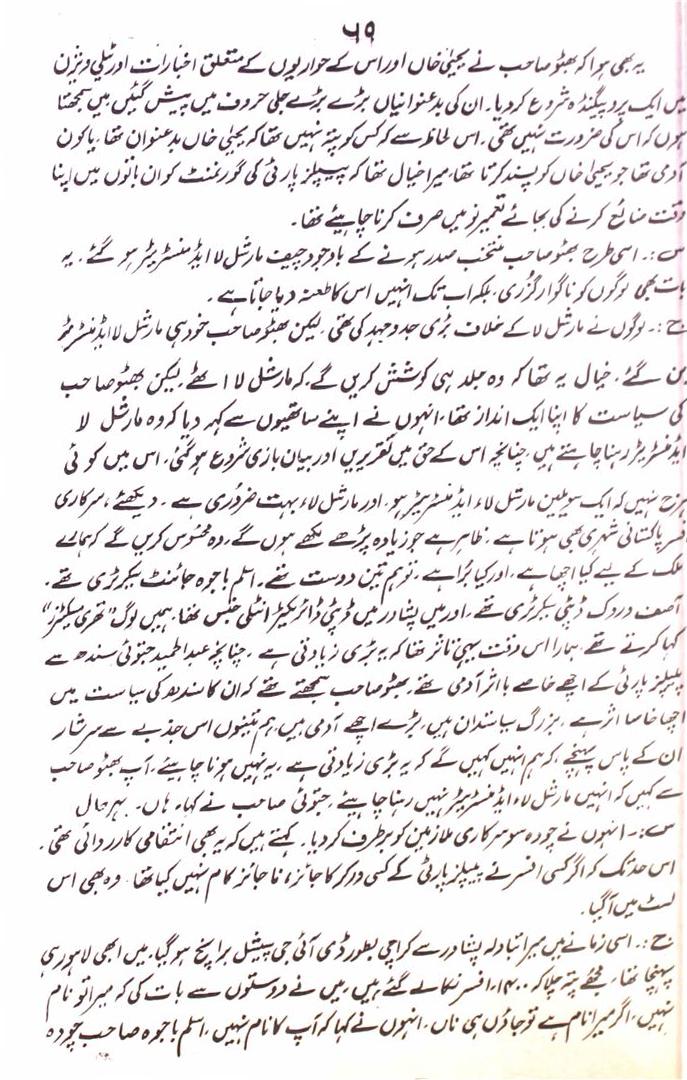 ۶۹
یہ بھی ہوا کہ بھٹو صاحب نے یحییٰ خاں اور اس کے حواریوں کے متعلق اخبارات اور ٹیلی ویژن
میں ایک پروپیگنڈہ شروع کر دیا۔ ان کی بدعنوانیاں بڑے بڑے جلی حروف میں پیش کی گئیں میں سمجھتا
ہوں کہ اس کی ضرورت نہیں تھی۔ اس لحاظ سے کہ کس کو پتہ نہیں تھا کہ یحییٰ خاں بدعنوان تھا، یا کون
آدمی تھا جو یحییٰ خاں کو پسند کرتا تھا، میرا خیال تھا کہ پیپلز پارٹی کی گورنمنٹ کو ان باتوں میں اپنا
وقت ضائع کرنے کی بجائے تعمیر نو میں صرف کرنا چاہیئے تھا۔
س:۔ اسی طرح بھٹو صاحب منتخب صدر ہونے کے باوجود چیف مارشل لا ایڈمنسٹریٹر ہو گئے۔ یہ
بات بھی لوگوں کو ناگوار گزری، بلکہ اب تک انہیں اس کا طعنہ دیا جاتا ہے۔
ج:۔ لوگوں نے مارشل لا کے خلاف بڑی جدوجہد کی تھی، لیکن بھٹو صاحب خود ہی مارشل لا ایڈمنسٹریٹر
بن گئے، خیال یہ تھا کہ وہ جلد ہی کوشش کریں گے، کہ مارشل لا اٹھے، لیکن بھٹو صاحب
کی سیاست کا اپنا ایک انداز تھا، انہوں نے اپنے ساتھیوں سے کہہ دیا کہ وہ مارشل لا
ایڈمنسٹریٹر رہنا چاہتے ہیں، چنانچہ اس کے حق میں تقریریں اور بیان بازی شروع ہو گئی، اس میں کوئی
ہرج نہیں کہ ایک سویلین مارشل لاء ایڈمنسٹریٹر ہو، اور مارشل لاء بہت ضروری ہے۔ دیکھئے، سرکاری
افسر پاکستانی شہری بھی ہوتا ہے، ظاہر ہے جو زیادہ پڑھے لکھے ہوں گے، وہ محسوس کریں گے کہ ہمارے
ملک کے لیے کیا اچھا ہے، اور کیا برا ہے، تو ہم تین دوست تھے۔ اسلم باجوہ جائنٹ سیکرٹری تھے۔
آصف ودروک ڈپٹی سیکرٹری تھے، اور میں پشاور میں ڈپٹی ڈائریکٹر انٹیلی جنس تھا، ہمیں لوگ "تھری مسکٹیرز"
کہا کرتے تھے، ہمارا اس وقت یہی تاثر تھا کہ یہ بڑی زیادتی ہے، چنانچہ عبدالحمید جتوئی سندھ سے
پیپلز پارٹی کے اچھے خاصے بااثر آدمی تھے، بھٹو صاحب سمجھتے تھے کہ ان کا سندھ کی سیاست میں
اچھا خاصا اثر ہے، بزرگ سیاستدان ہیں، بڑے اچھے آدمی ہیں، ہم تینوں اس جذبے سے سرشار
ان کے پاس پہنچے، کہ ہم انہیں کہیں گے کہ یہ بڑی زیادتی ہے، یہ نہیں ہونا چاہیئے، آپ بھٹو صاحب
سے کہیں کہ انہیں مارشل لاء ایڈمنسٹریٹر نہیں رہنا چاہیئے، جتوئی صاحب نے کہا، ہاں۔ بہرحال
س:۔ انہوں نے چودہ سو سرکاری ملازمین کو برطرف کر دیا۔ کہتے ہیں کہ یہ بھی انتقامی کارروائی تھی۔
اس حد تک کہ اگر کسی افسر نے پیپلز پارٹی کے کسی ورکر کا جائز، ناجائز کام نہیں کیا تھا، وہ بھی اس
لسٹ میں آ گیا۔
ج:۔ اسی زمانے میں میرا تبادلہ پشاور سے کراچی بطور ڈی آئی جی سپیشل برانچ ہو گیا، میں ابھی لاہور ہی
پہنچا تھا، مجھے پتہ چلا کہ ۱۴۰۰ افسر نکالے گئے ہیں، میں نے دوستوں سے بات کی کہ میرا تو نام
نہیں، اگر میرا نام ہے تو جاؤں ہی ناں، انہوں نے کہا کہ آپ کا نام نہیں، اسلم باجوہ صاحب چودہ